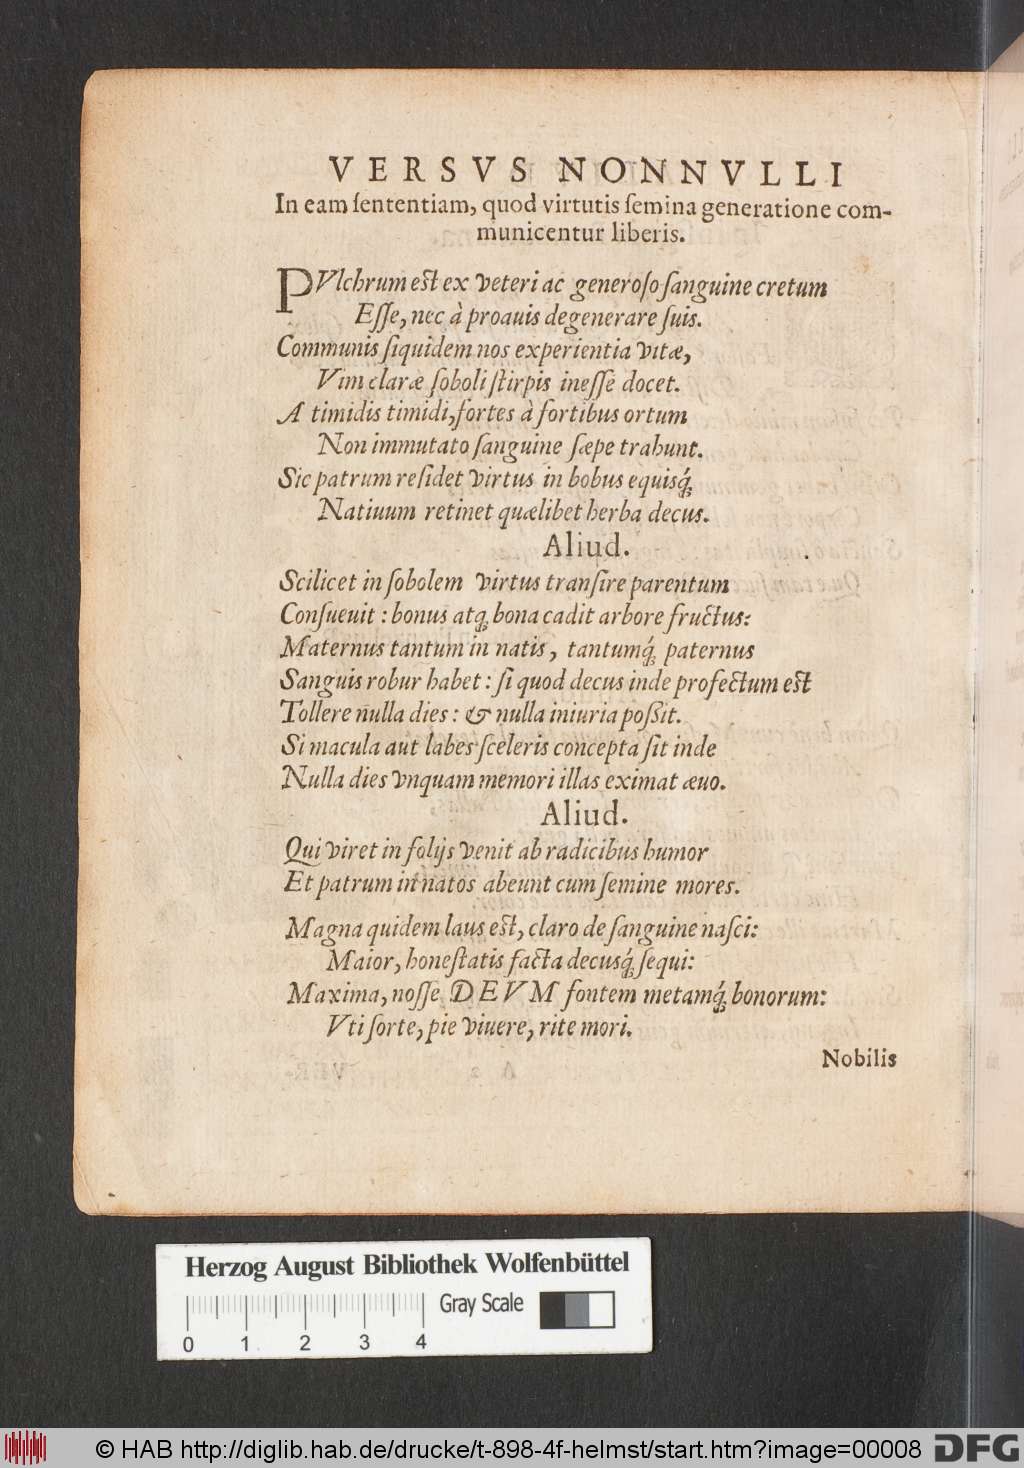 VERSVS NONNVLLI
In eam ſententiam, quod virtutis ſemina generatione com-
municentur liberis.
PVlchrum est ex veteri ac generoſo ſanguine cretum
Eſſe, nec à proauis degenerare ſuis.
Communis ſiquidem nos experientia vitæ,
Vim claræ ſoboli ſtirpis ineſſe docet.
A timidis timidi, fortes à fortibus ortum
Non immutato ſanguine ſæpe trahunt.
Sic patrum reſidet virtus in bobus equisq́;
Natiuum retinet quælibet herba decus.
Aliud.
Scilicet in ſobolem virtus tranſire parentum
Conſueuit: bonus atq; bona cadit arbore fructus:
Maternus tantum in natis, tantumq́; paternus
Sanguis robur habet: ſi quod decus inde profectum est
Tollere nulla dies: & nulla iniuria poſsit.
Si macula aut labes ſceleris concepta ſit inde
Nulla dies vnquam memori illas eximat æuo.
Aliud.
Qui viret in folijs venit ab radicibus humor
Et patrum in natos abeunt cum ſemine mores.
Magna quidem laus est, claro de ſanguine naſci:
Maior, honeſtatis facta decusq́; ſequi:
Maxima, noſſe DEVM fontem metamq́; bonorum:
Vti ſorte, pie viuere, rite mori.
Nobilis
Herzog August Bibliothek Wolfenbüttel
0 1 2 3 4 Gray Scale
© HAB http://diglib.hab.de/drucke/t-898-4f-helmst/start.htm?image=00008 DFG